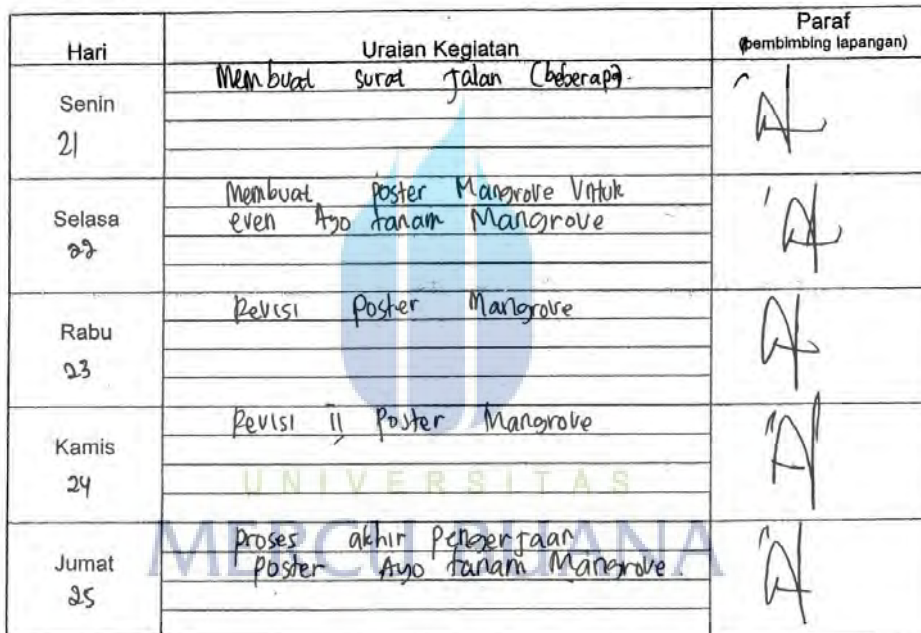 Hari Uraian Kegiatan Paraf
(pembimbing lapangan)
Senin
21
Membuat surat jalan (beberapa).
Selasa
22
Membuat poster Mangrove Untuk
even Ayo tanam Mangrove
Rabu
23
Revisi Poster Mangrove
Kamis
24
Revisi II Poster Mangrove
UNIVERSITAS
MERCU BUANA
Jumat
25
Proses akhir Pengerjaan
Poster Ayo tanam Mangrove.